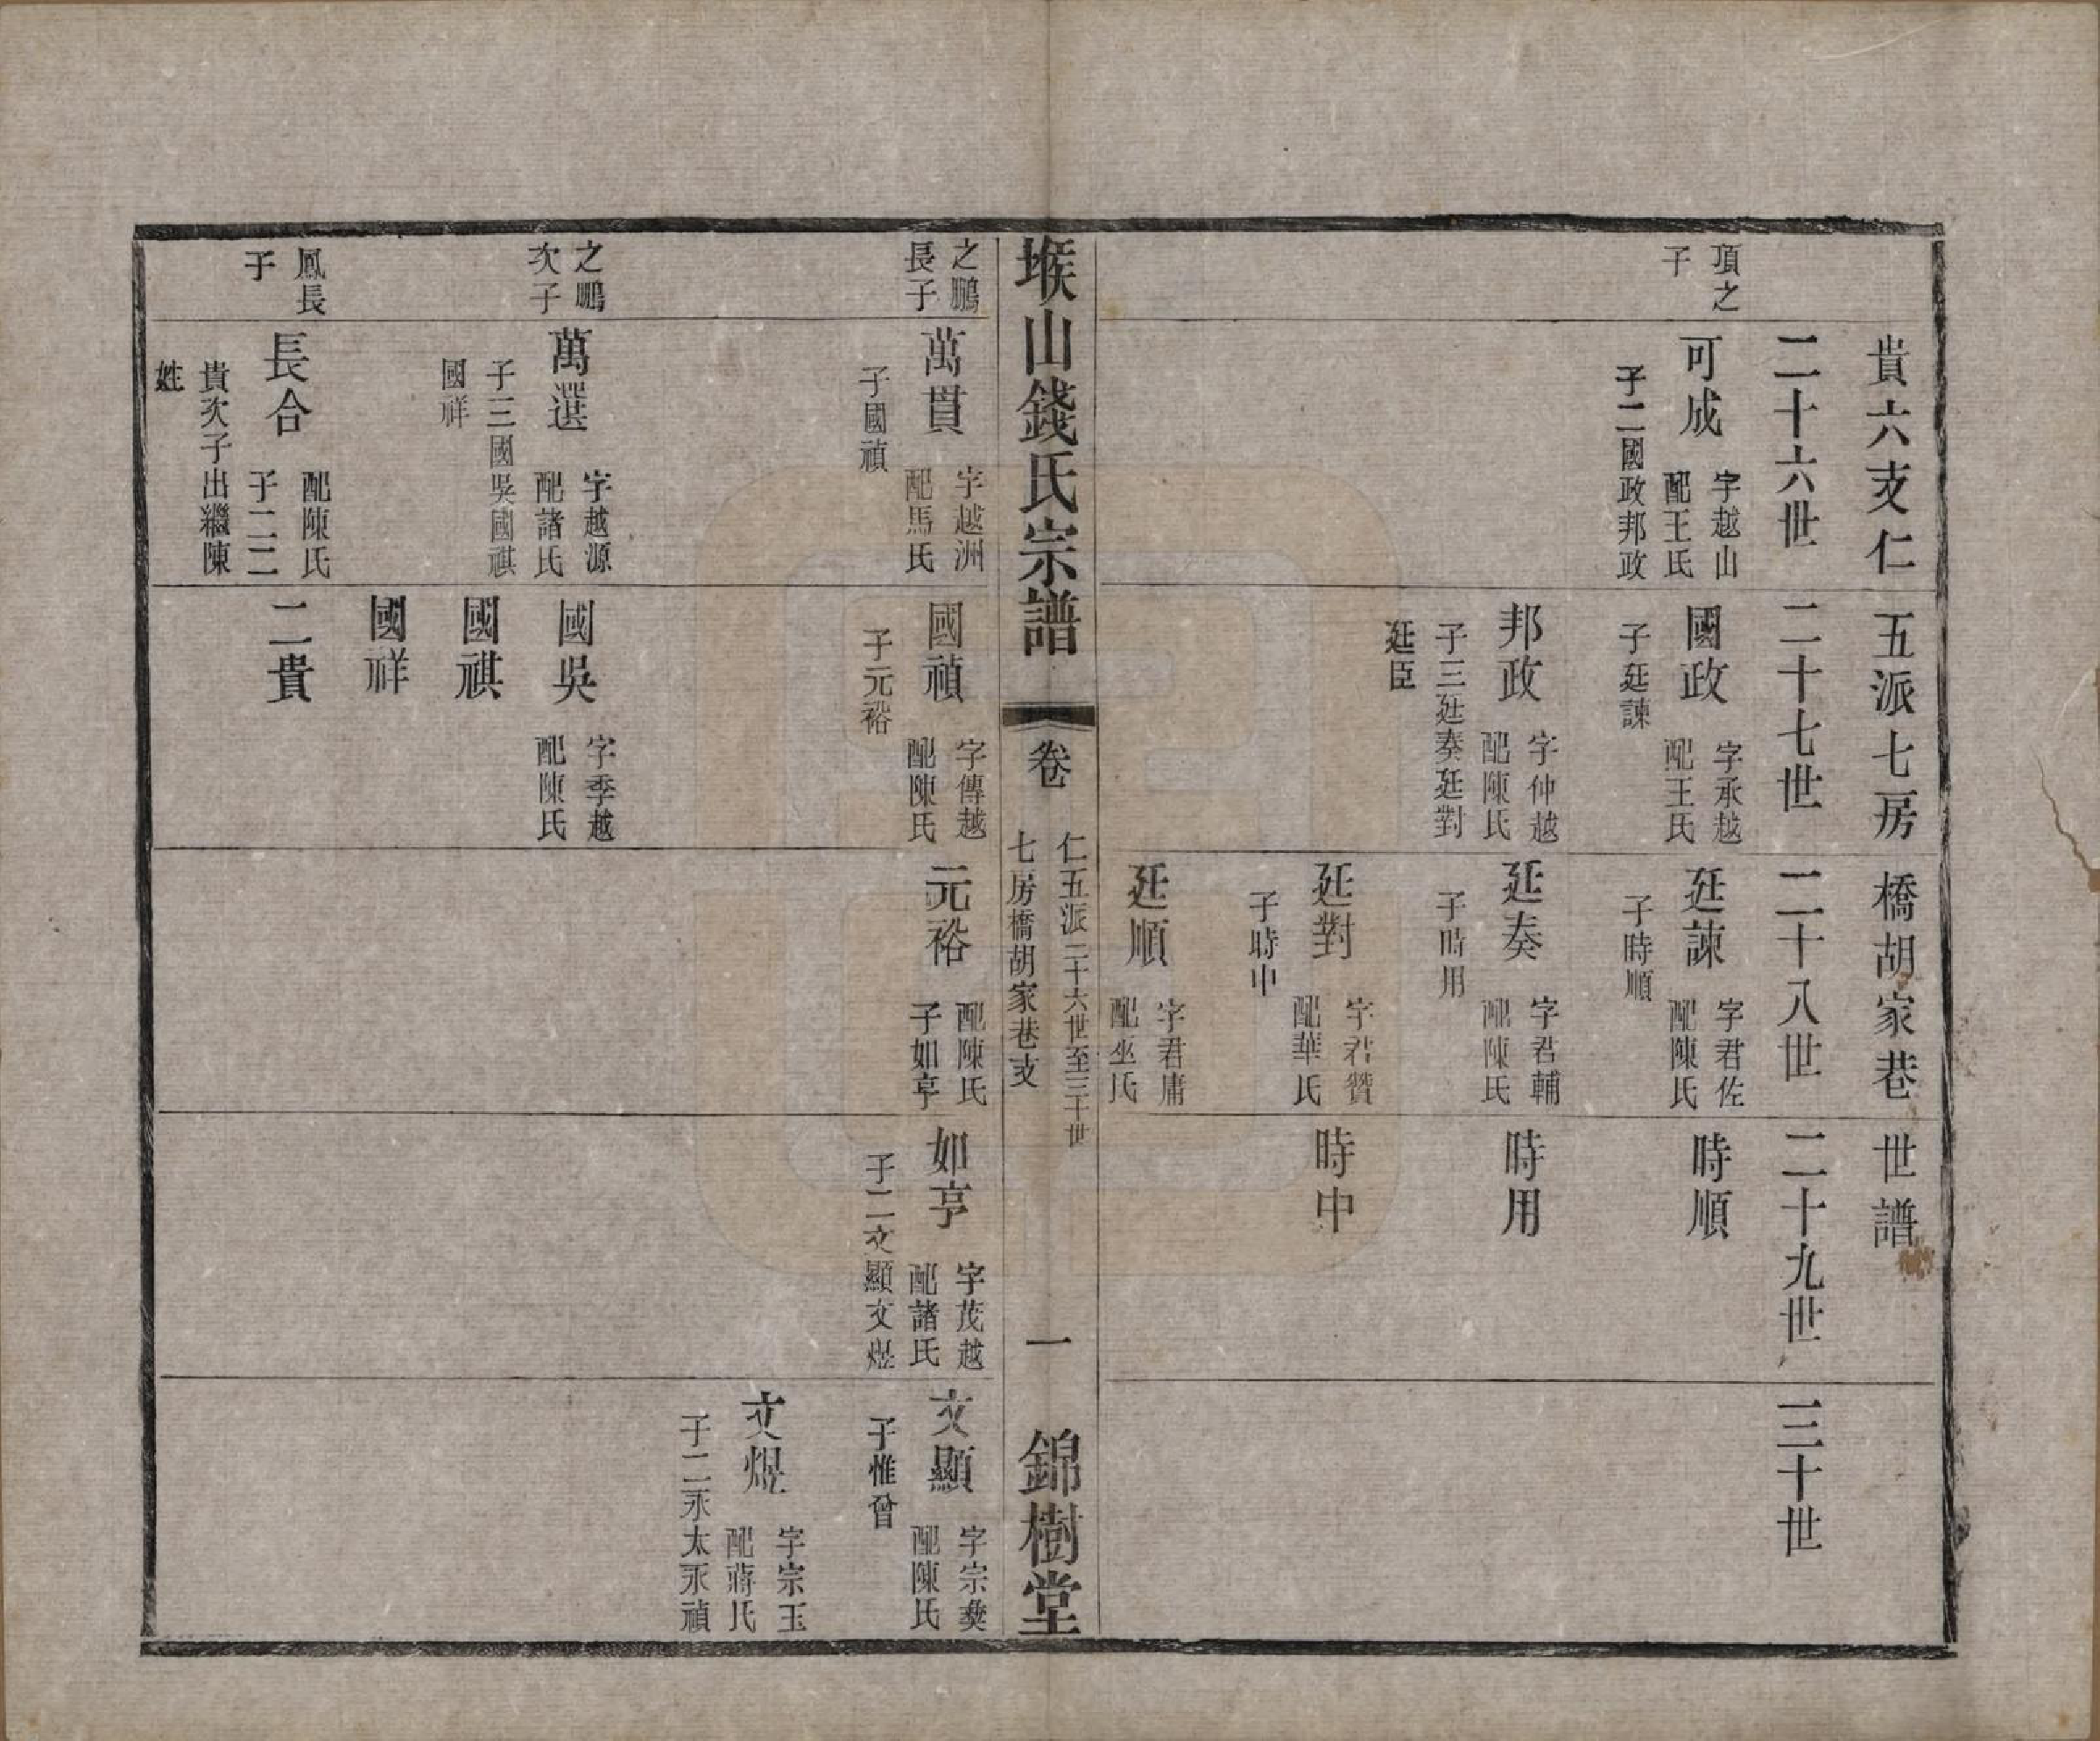 貴六支仁五派七房橋胡家巷世譜
二十六世
二十七世
二十八世
二十九世
三十世
項之
子
可成
字越山
配王氏
子二國政邦政
國政
字承越
配王氏
子廷諫
邦政
字仲越
配陳氏
子三廷奏廷對
廷臣
廷諫
字君佐
配陳氏
子時順
廷奏
字君輔
配陳氏
子時用
廷對
字君贊
配華氏
子時中
廷順
字君庸
配巫氏
時順
時用
時中
堠山錢氏宗譜
卷
仁五派二十六世至三十世
七房橋胡家巷支
一
錦樹堂
之鵬
長子
萬貫
字越洲
配馬氏
子國禎
國禎
字傳越
配陳氏
子元裕
元裕
配陳氏
子如亨
如亨
字茂越
配諸氏
子二文顯文煜
文顯
字宗彝
配陳氏
子惟曾
文煜
字宗玉
配蔣氏
子二永太永禎
之鵬
次子
萬選
字越源
配諸氏
子三國吳國祺
國祥
國吳
字季越
配陳氏
國祺
國祥
鳳長
子
長合
配陳氏
子二二
貴次子出繼陳
姓
二貴